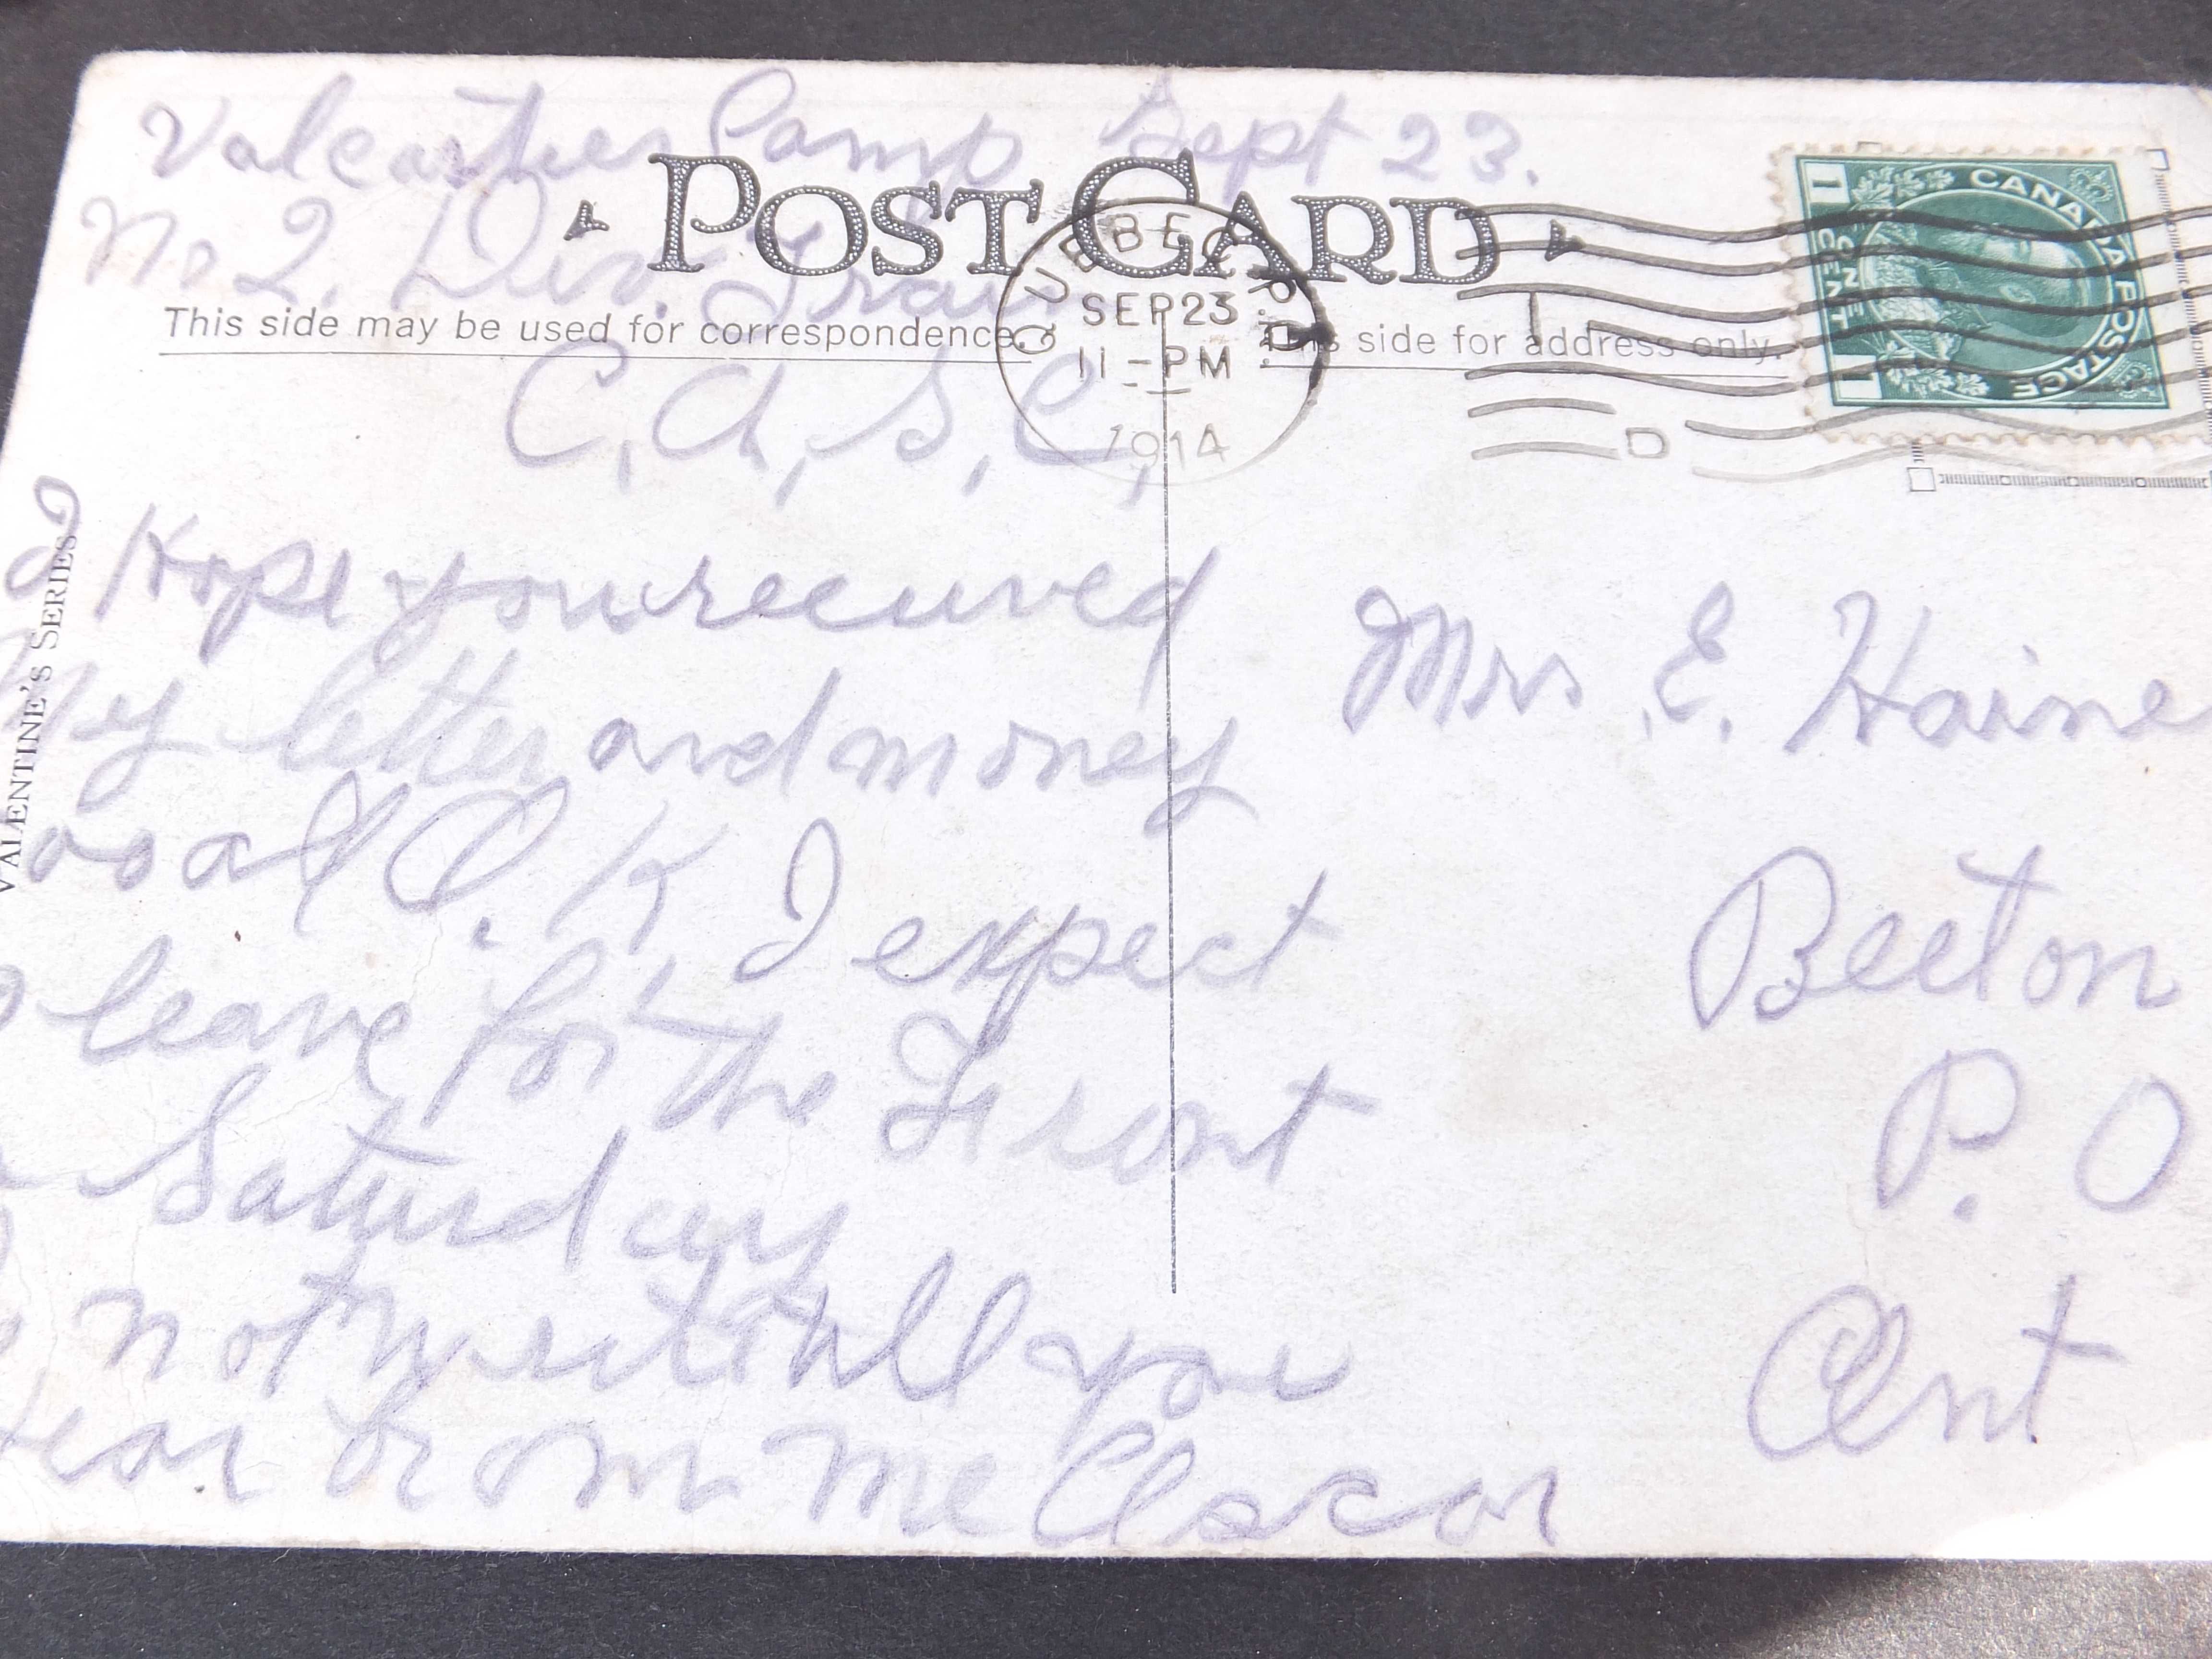 Valcartier Camp Sept 23.
No 2. Div. Train
C.A.S.C.
POST CARD
This side may be used for correspondence.
This side for address only.
QUEBEC
SEP 23
11-PM
1914
CANADA POSTAGE
1 ONE CENT 1
VALENTINE'S SERIES
I Hope you received
My letter and money
all O.K I expect
leave for the Front
Saturday
not writ till you
from me Oscar
Mrs. E. Haine
Beeton
P. O
Ont